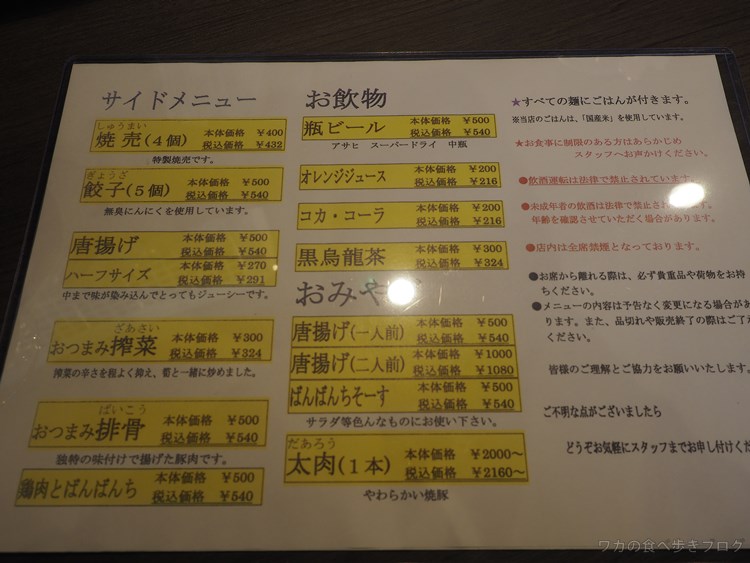 サイドメニュー
しゅうまい
焼売(4個) 本体価格 ¥400
税込価格 ¥432
特製焼売です。
ぎょうざ
餃子(5個) 本体価格 ¥500
税込価格 ¥540
無臭にんにくを使用しています。
唐揚げ 本体価格 ¥500
税込価格 ¥540
ハーフサイズ 本体価格 ¥270
税込価格 ¥291
中まで味が染み込んでとってもジューシーです。
ざあさい
おつまみ搾菜 本体価格 ¥300
税込価格 ¥324
搾菜の辛さを程よく抑え、筍と一緒に炒めました。
ぱいこう
おつまみ排骨 本体価格 ¥500
税込価格 ¥540
独特の味付けで揚げた豚肉です。
鶏肉とばんばんち 本体価格 ¥500
税込価格 ¥540
お飲物
瓶ビール 本体価格 ¥500
税込価格 ¥540
アサヒ スーパードライ 中瓶
オレンジジュース 本体価格 ¥200
税込価格 ¥216
コカ・コーラ 本体価格 ¥200
税込価格 ¥216
黒烏龍茶 本体価格 ¥300
税込価格 ¥324
おみやげ
唐揚げ(一人前) 本体価格 ¥500
税込価格 ¥540
唐揚げ(二人前) 本体価格 ¥1000
税込価格 ¥1080
ばんばんちそーす 本体価格 ¥500
税込価格 ¥540
サラダ等色んなものにお使い下さい。
だあろう
太肉(1本) 本体価格 ¥2000~
税込価格 ¥2160~
やわらかい焼豚
★すべての麺にごはんが付きます。
※当店のごはんは、「国産米」を使用しています。
★お食事に制限のある方はあらかじめ
スタッフへお声かけください。
●飲酒運転は法律で禁止されています。
●未成年者の飲酒は法律で禁止され
年齢を確認させていただく場合があります。
●店内は全席禁煙となっております。
●お席から離れる際は、必ず貴重品や荷物をお持
ちください。
●メニューの内容は予告なく変更になる場合があ
ります。また、品切れや販売終了の際はご了
ください。
皆様のご理解とご協力をお願いいたします。
ご不明な点がございましたら
どうぞお気軽にスタッフまでお申し付けくだ
ワカの食べ歩きブログ